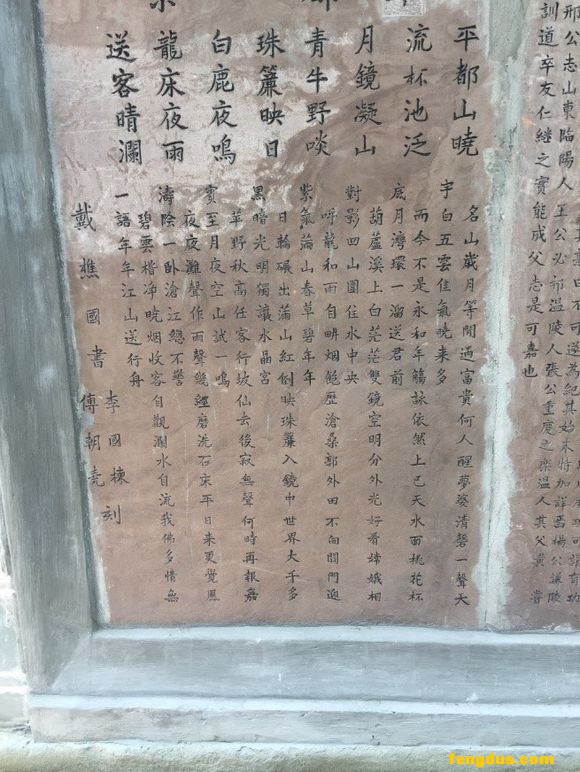 邢公志山東臨陽人王公必祁溫陵人張公重慶之梁溫人其父黃嘗
訓道卒友仁繼之實能成父志是可嘉也
平都山曉
名山歲月等閒過富貴何人醒夢婆清磬一聲大
宇白五雲佳氣曉來多
流杯池泛
而今不是永和年觴詠依然上巳天水面桃花杯
底月灣環一溜送君前
月鏡凝山
葫蘆溪上白茫茫雙鏡空明分外光好看嫦娥相
對影四山團住水中央
青牛野啖
呼龍和雨自耕烟飽歷滄桑郭外田不向關門迎
紫氣滿山春草碧年年
珠簾映日
日輪碾出滿山紅倒映珠簾入鏡中世界大千多
黑暗光明獨讓水晶宮
白鹿夜鳴
苹野秋高任客行坡仙去後寂無聲何時再報嘉
賓至月夜空山試一鳴
龍床夜雨
夜夜灘聲作雨聲幾經磨洗石床平日來更覺風
濤險一臥滄江總不驚
送客晴瀾
碧雲楷淨晚烟收客自觀瀾水自流我佛多情無
一語年年江山送行舟
李國棟刻
戴樵國書 傅朝堯
fengdus.com